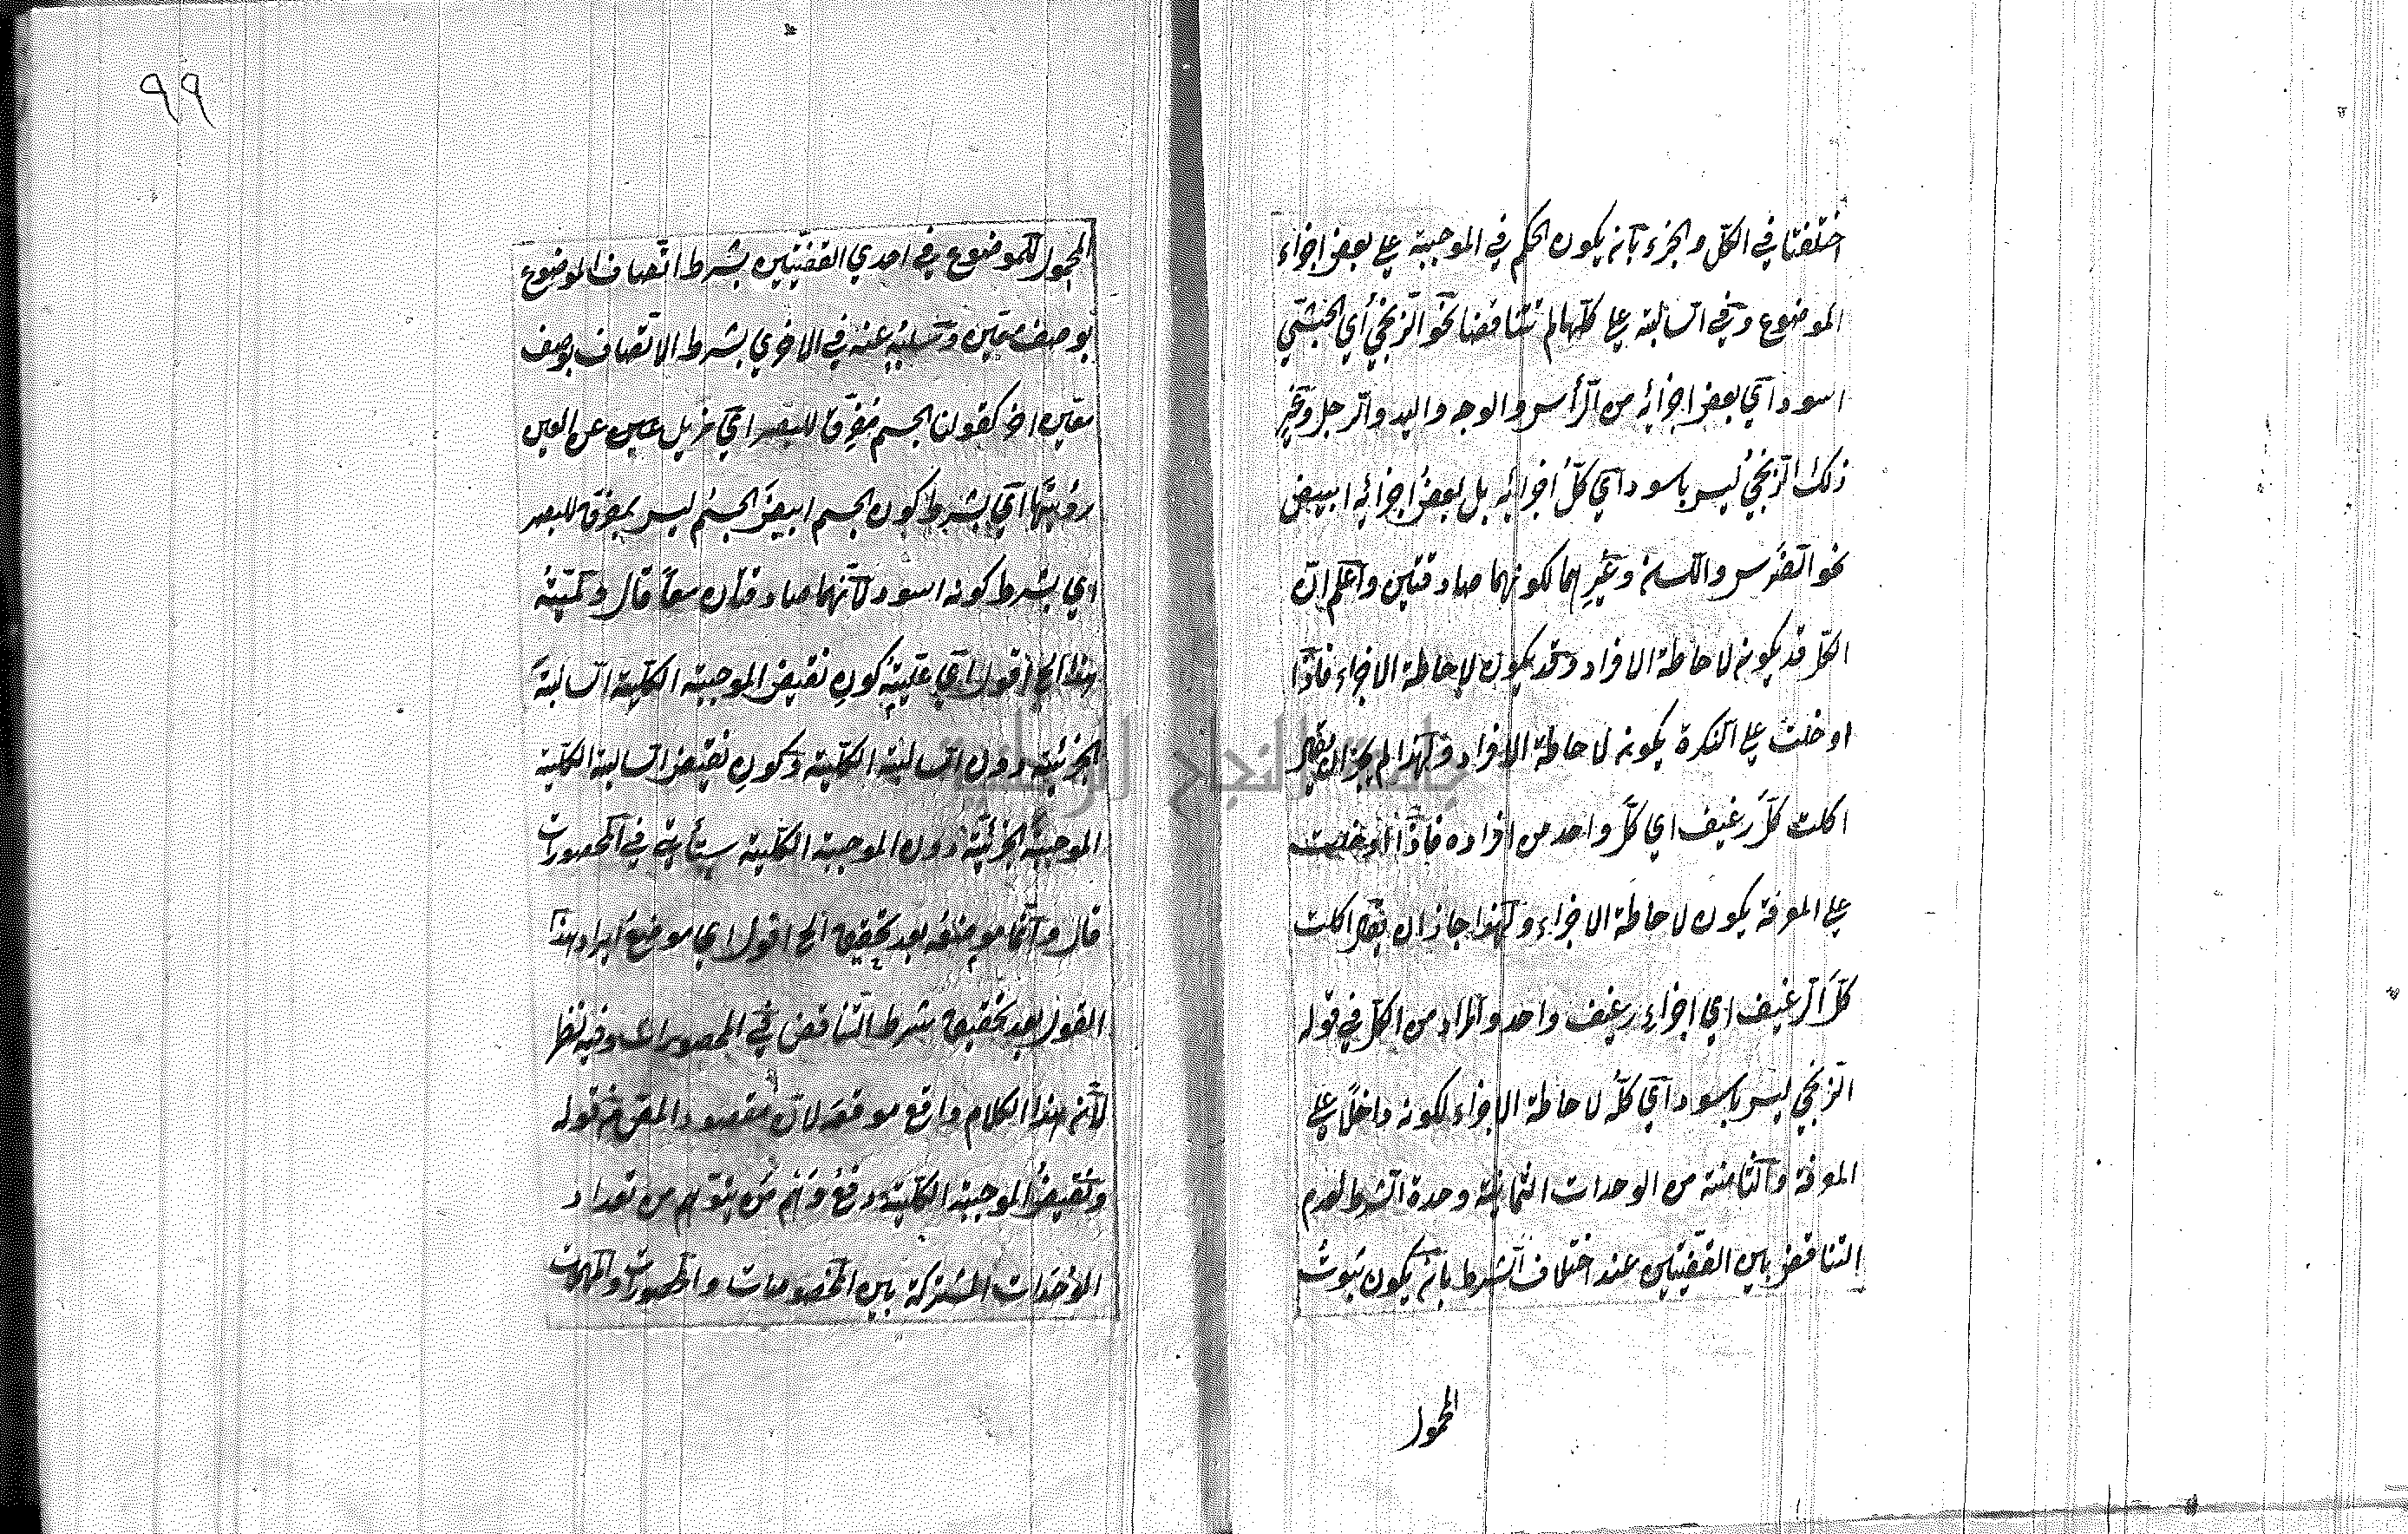 اختلفتا في الكل والجزء بأنه يكون الحكم في الموجبة على بعض اجزاء
الموضوع وفي السالبة على كلها لم تتناقضا نحو الزنجي أي الحبشي
اسود أي بعض اجزائه من الرأس والوجه واليد والرجل وغير
ذلك الزنجي ليس باسود أي كل أجزائه بل بعض اجزائه ابيض
نحو الضرس والسنة وغيرهما لكونهما صادقتين واعلم ان
الكل قد يكونه لاحاطة الافراد وقد يكون لاحاطة الاجزاء فاذا
ادخلت على النكرة يكونه لاحاطة الافراد ولهذا لم يجز ان يقال
اكلت كل رغيف اي كل واحد من افراده فاذا ادخلت
على المعرفة يكون لاحاطة الاجزاء ولهذا جاز ان يقال اكلت
كل الرغيف اي اجزاء رغيف واحد والمراد من الكل في قوله
الزنجي ليس باسود أي كله لاحاطة الاجزاء لكونه داخلا على
المعرفة والثامنة من الوحدات الثمانية وحدة الشرط لعدم
التناقض بين القضيتين عند اختلاف الشرط بأنه يكون ثبوت
المحمول
٩٩
المحمول للموضوع في احدي القضيتين بشرط اتصاف الموضوع
بوصف معين وسلبه عنه في الاخري بشرط الاتصاف بوصف
معين اخر كقولنا الجسم مفرق للبصر اي مزيل عن العين
رؤيتها اي بشرط كون الجسم ابيض الجسم ليس بمفرق للبصر
اي بشرط كونه اسود لانهما صادقتان معا قال وكمية
هذا الخ اقول اي علية كون نقيض الموجبة الكلية السالبة
الجزئية دون السالبة الكلية وكون نقيض السالبة الكلية
الموجبة الجزئية دون الموجبة الكلية سيأتي في المحصورات
قال وانما موضعه بعد تحقيق الخ اقول اي موضع ايراد هذا
القول بعد تحقيق شرط التناقض في المحصورات وفيه نظر
لأنه هذا الكلام واقع موقعه لان مقصود المص من قوله
ونقيض الموجبة الكلية دفع وهم من يتوهم من تعداد
الوحدات المشتركة بين المخصوصات والمحصورات والمهملات